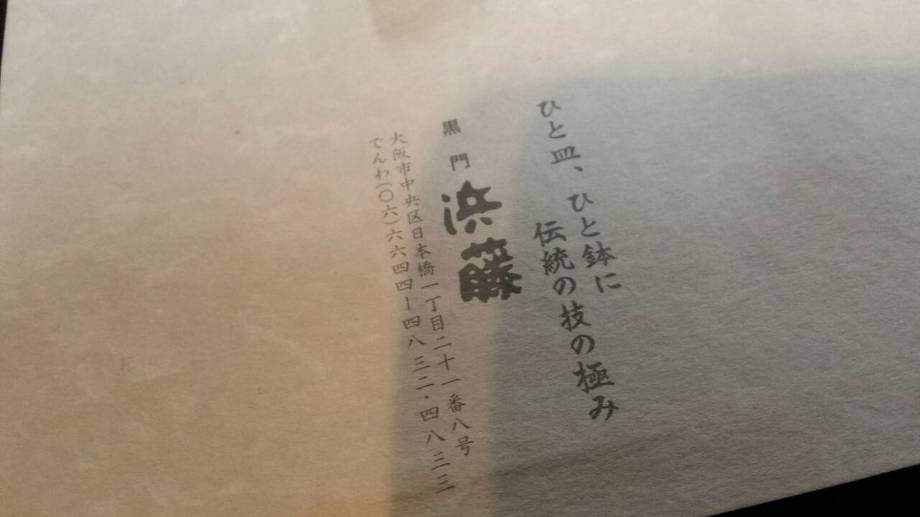 ひと皿、ひと鉢に
伝統の技の極み
黒門
浜藤
大阪市中央区日本橋一丁目二十一番八号
でんわ(〇六)六六四四ー四八三二・四八三三